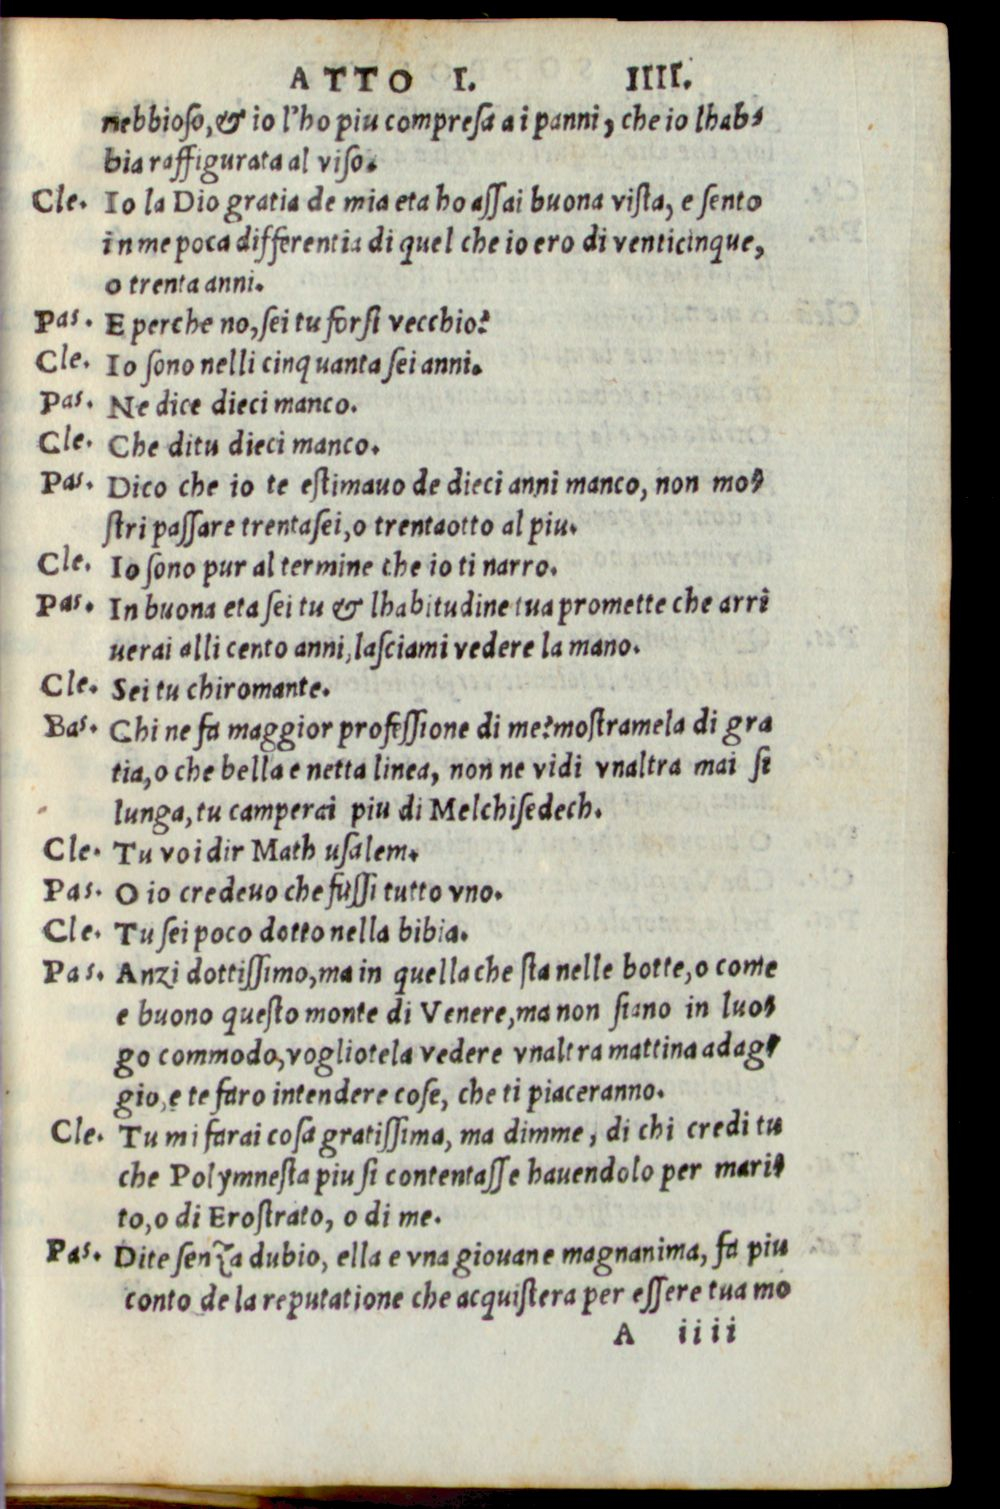 ATTO I. IIII.
nebbioso, & io l'ho piu compresa a i panni, che io lhab-
bia raffigurata al viso.
Cle. Io la Dio gratia de mia eta ho assai buona vista, e sento
in me poca differentia di quel che io ero di venticinque,
o trenta anni.
Pas. E perche no, sei tu forsi vecchio?
Cle. Io sono nelli cinquanta sei anni.
Pas. Ne dice dieci manco.
Cle. Che di tu dieci manco.
Pas. Dico che io te estimauo de dieci anni manco, non mo-
stri passare trentasei, o trentaotto al piu.
Cle. Io sono pur al termine che io ti narro.
Pas. In buona eta sei tu & lhabitudine tua promette che arri
uerai alli cento anni, lasciami vedere la mano.
Cle. Sei tu chiromante.
Bas. Chi ne fa maggior professione di me? mostramela di gra
tia, o che bella e netta linea, non ne vidi vnaltra mai si
lunga, tu camperai piu di Melchisedech.
Cle. Tu voi dir Math usalem.
Pas. O io credeuo che fussi tutto vno.
Cle. Tu sei poco dotto nella bibia.
Pas. Anzi dottissimo, ma in quella che sta nelle botte, o come
e buono questo monte di Venere, ma non siano in luo-
go commodo, vogliotela vedere vnaltra mattina adag-
gio, e te faro intendere cose, che ti piaceranno.
Cle. Tu mi farai cosa gratissima, ma dimme, di chi credi tu
che Polymnesta piu si contentasse hauendolo per mari-
to, o di Erostrato, o di me.
Pas. Dite senza dubio, ella e vna giouane magnanima, fa piu
conto de la reputatione che acquistera per essere tua mo
A iiii